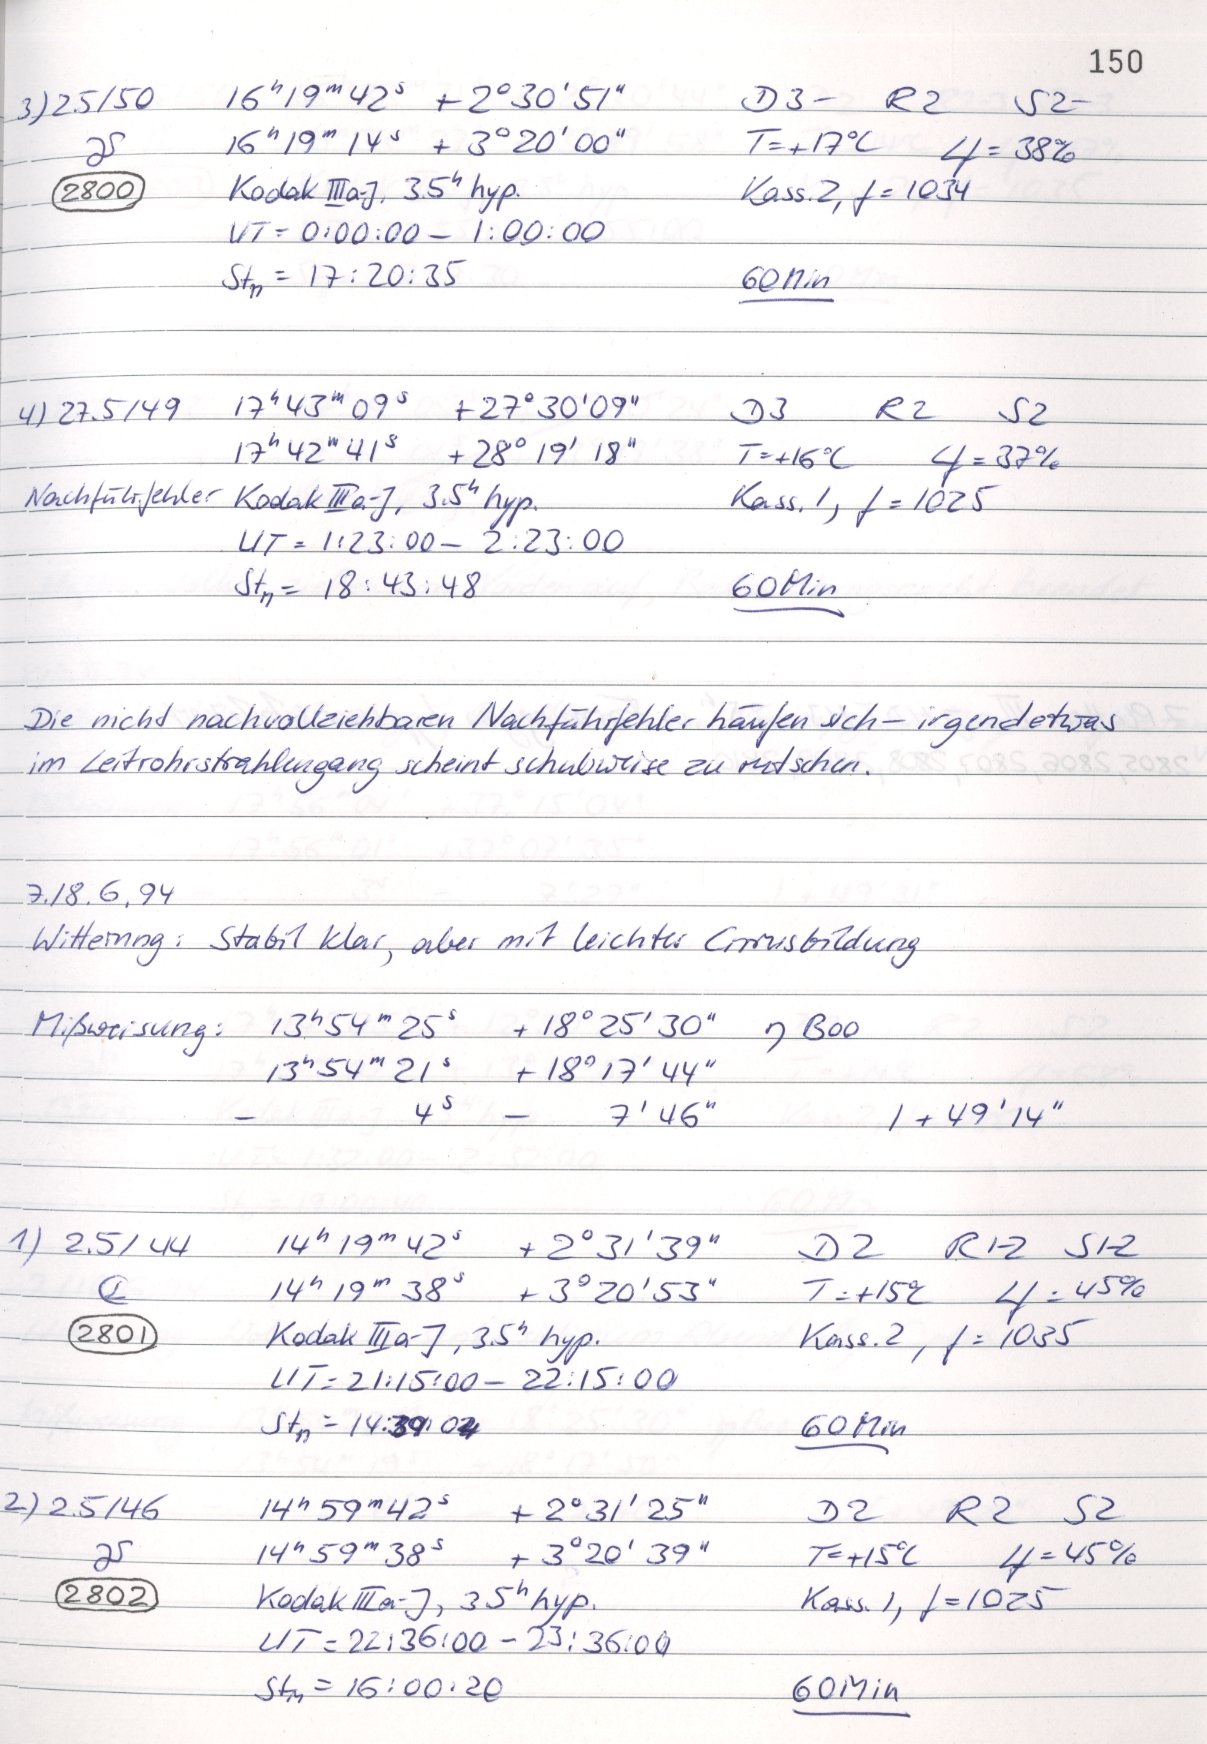 150
3) 2.5/50 16ʰ19ᵐ42ˢ +2°30'51" D3- R2 S2-
16ʰ19ᵐ14ˢ +3°20'00" T=+17°C φ=38%
2800 Kodak IIIa-J, 3.5ʰ hyp. Kass.2, f=1034
UT=0:00:00 – 1:00:00
Stₙ = 17:20:35 60Min
4) 27.5/49 17ʰ43ᵐ09ˢ +27°30'09" D3 R2 S2
17ʰ42ᵐ41ˢ +28°19'18" T=+16°C φ=37%
Nachführfehler Kodak IIIa-J, 3.5ʰ hyp. Kass.1, f=1025
UT = 1:23:00 – 2:23:00
Stₙ = 18:43:48 60Min
Die nicht nachvollziehbaren Nachführfehler häufen sich – irgendetwas
im Leitrohrstrahlengang scheint schubweise zu rutschen.
7./8.6.94
Witterung: Stabil klar, aber mit leichter Cirrusbildung
Mißweisung: 13ʰ54ᵐ25ˢ +18°25'30" η Boo
13ʰ54ᵐ21ˢ +18°17'44"
– 4ˢ – 7'46" / +49'14"
1) 2.5/44 14ʰ19ᵐ42ˢ +2°31'39" D2 R1-2 S1-2
14ʰ19ᵐ38ˢ +3°20'53" T=+15°C φ=45%
2801 Kodak IIIa-J, 3.5ʰ hyp. Kass.2, f=1035
UT=21:15:00 – 22:15:00
Stₙ = 14:39:04 60Min
2) 2.5/46 14ʰ59ᵐ42ˢ +2°31'25" D2 R2 S2
14ʰ59ᵐ38ˢ +3°20'39" T=+15°C φ=45%
2802 Kodak IIIa-J, 3.5ʰ hyp. Kass.1, f=1025
UT=22:36:00 – 23:36:00
Stₙ = 16:00:20 60Min